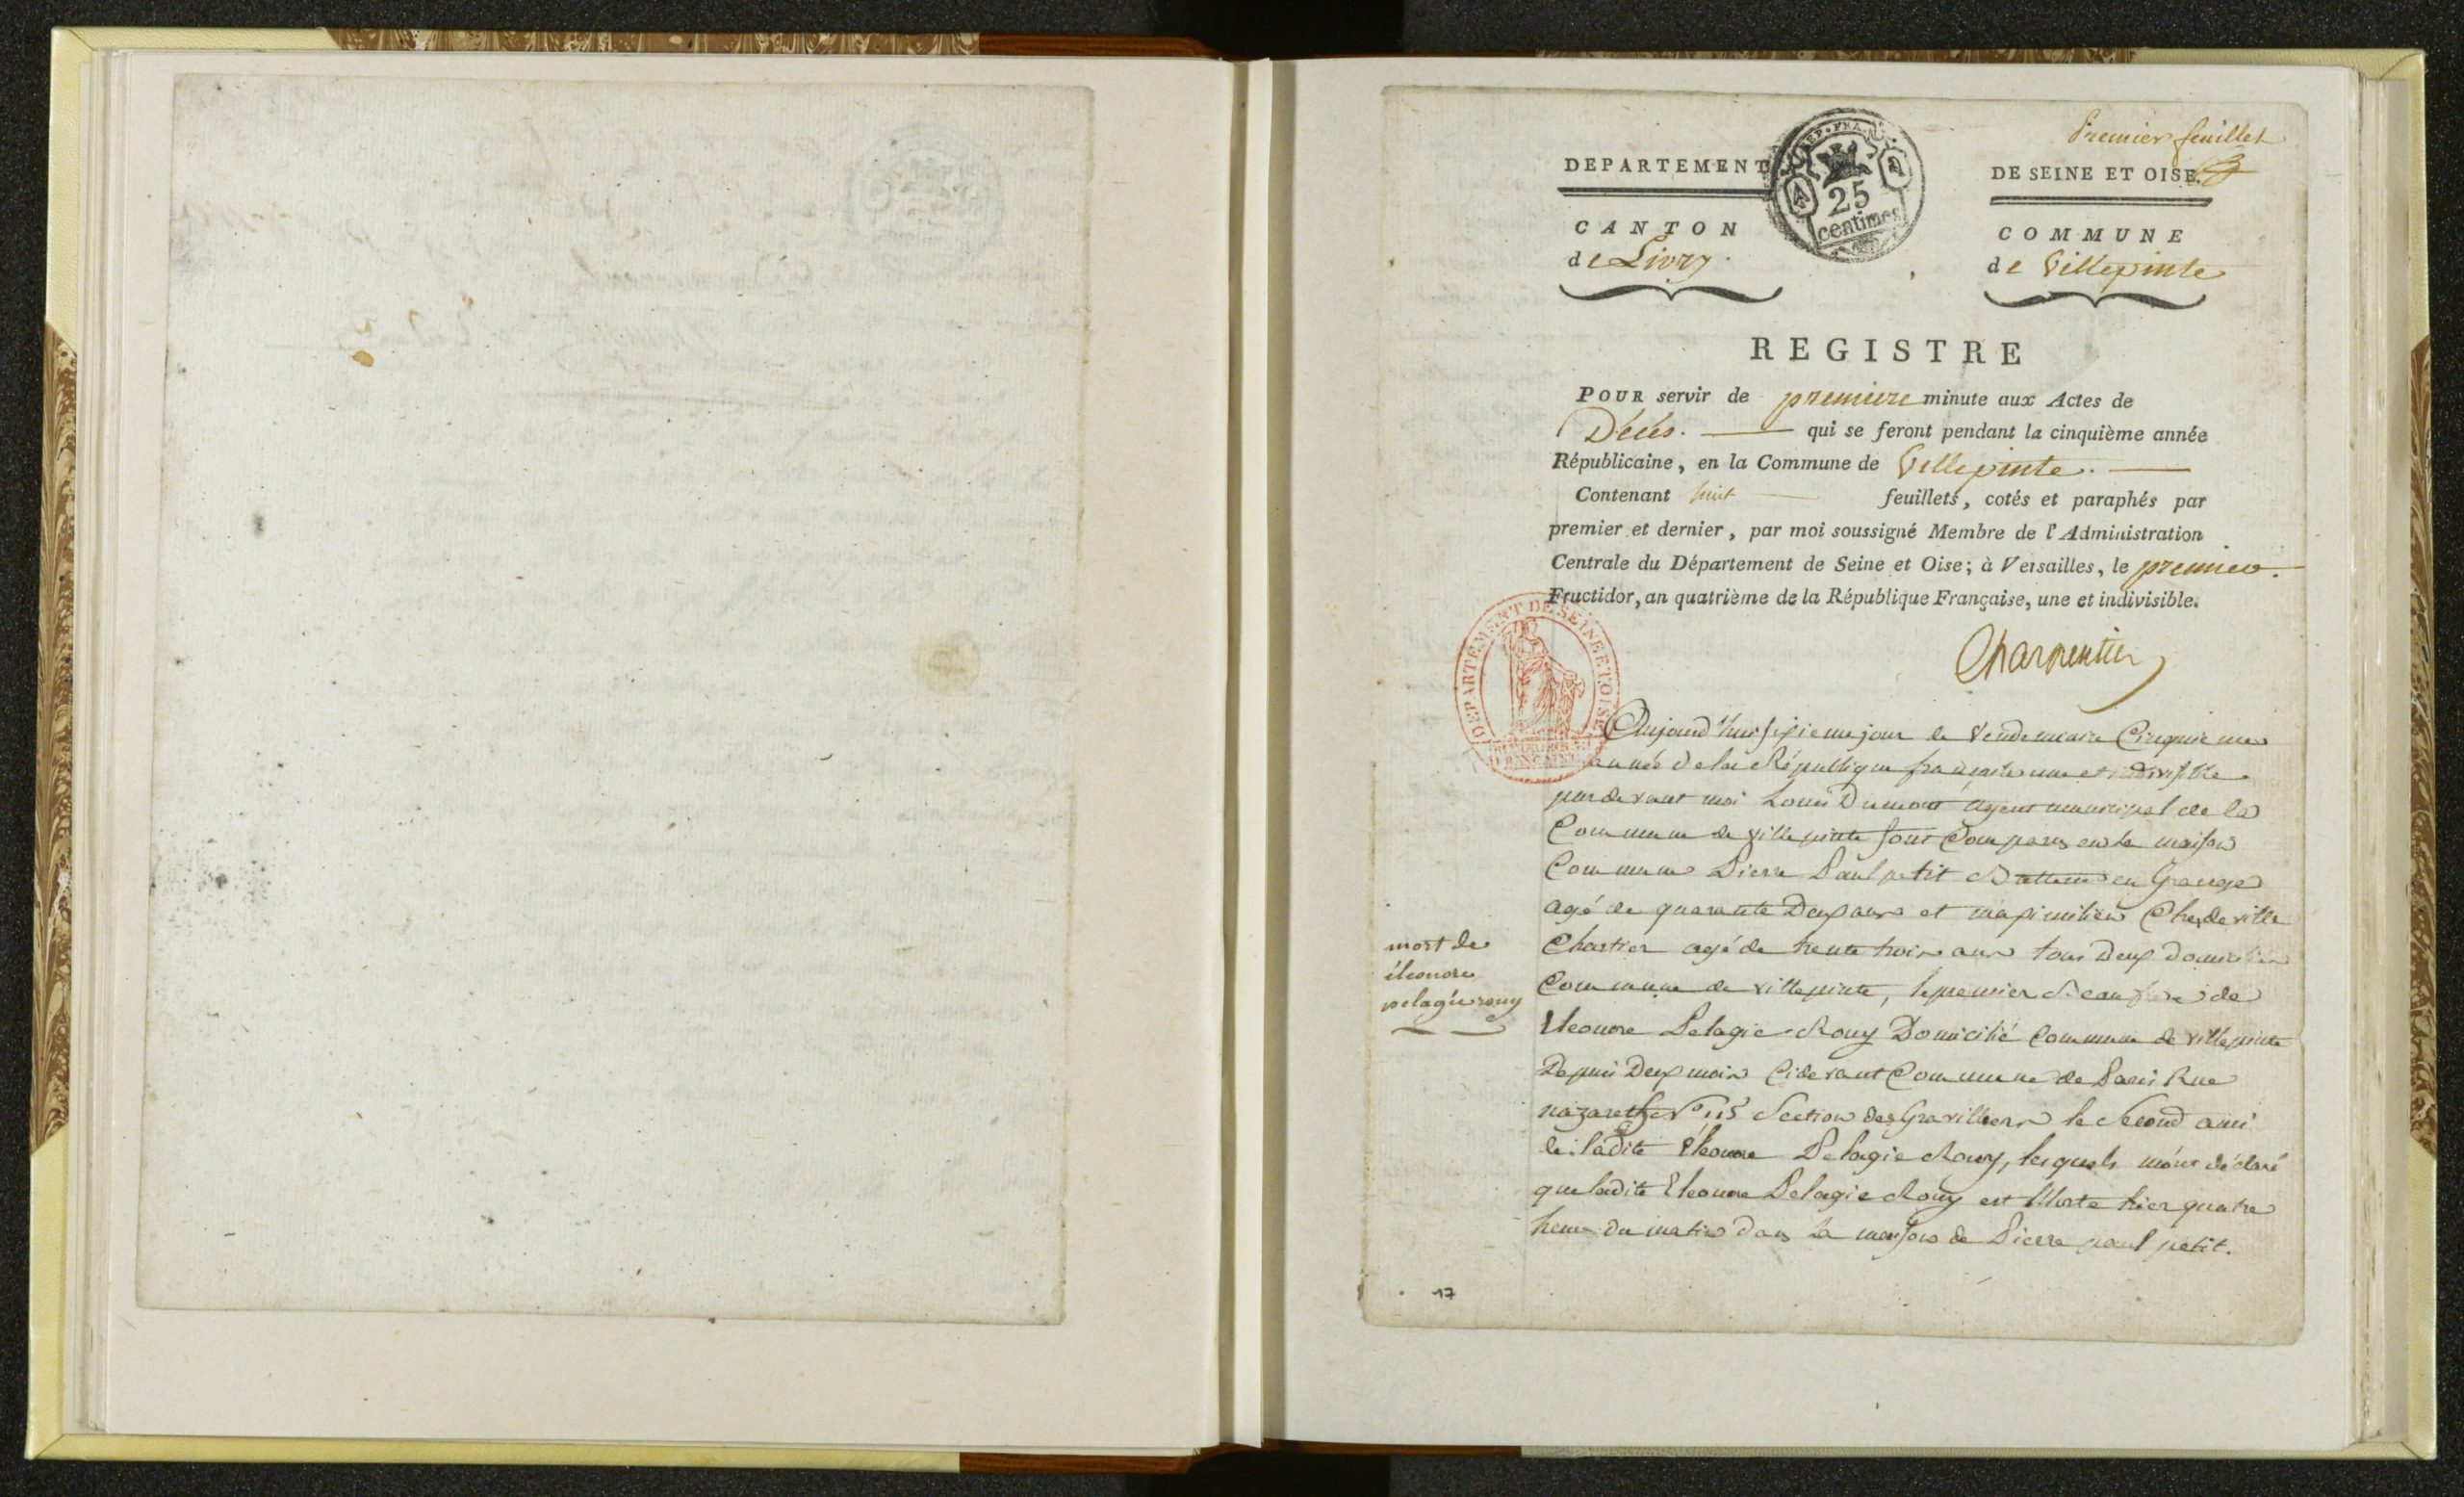 Premier feuillet
DEPARTEMENT DE SEINE ET OISE.
REP. FRA.
25
centimes
CANTON
de Livry.
COMMUNE
de Villepinte
REGISTRE
POUR servir de premiere minute aux Actes de
Décés. qui se feront pendant la cinquième année
Républicaine, en la Commune de Villepinte.
Contenant huit feuillets, cotés et paraphés par
premier et dernier, par moi soussigné Membre de l'Administration
Centrale du Département de Seine et Oise; à Versailles, le premier.
Fructidor, an quatrième de la République Française, une et indivisible.
Charpentier
DEPARTEMENT DE SEINE ET OISE
Aujourd'hui sixieme jour de Vendemiaire Cinquieme
année de la République française une et indivisible
pardevant moi Louis Dumont agent municipal de la
Commune de villepinte sont Comparus en la maison
Commune Pierre Paul petit Batteur en Grange
agé de quarante Deux ans et maximilien Chedeville
Chartier agé de trente trois ans tous Deux Domiciliés
Commune de villepinte, le premier Beau frere de
Eleonore Pelagie Rouy Domicilié Commune de villepinte
Depuis Deux mois Cidevant Commune de Paris Rue
nazareth N° 115 Section des Gravilliers le Second ami
de ladite Eleonore Pelagie Rouy, lesquels m'ont déclaré
que ladite Eleonore Pelagie Rouy est Morte hier quatre
heure du matin dans la maison de Pierre paul petit.
mort de
éleonore
pelagie rouy
17